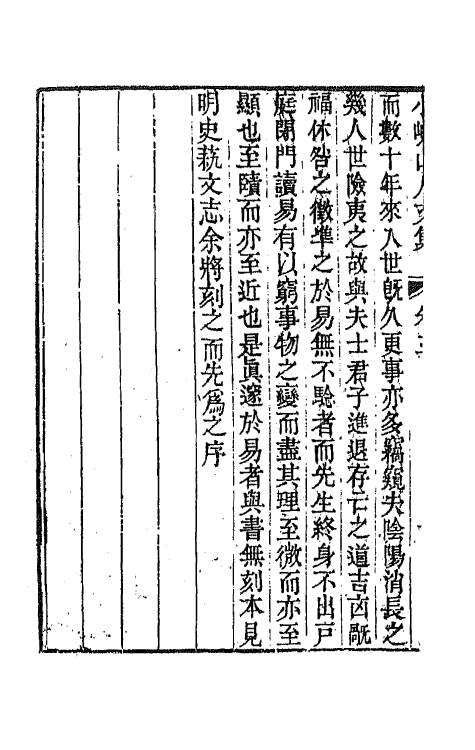 而數十年來入世既久更事亦多竊窺夫陰陽消長之
幾人世險夷之故與夫士君子進退存亡之道吉凶禍
福休咎之徵準之於易無不驗者而先生終身不出戸
庭閉門讀易有以窮事物之變而盡其理至微而亦至
顯也至賾而亦至近也是眞邃於易者與書無刻本見
明史蓺文志余將刻之而先爲之序